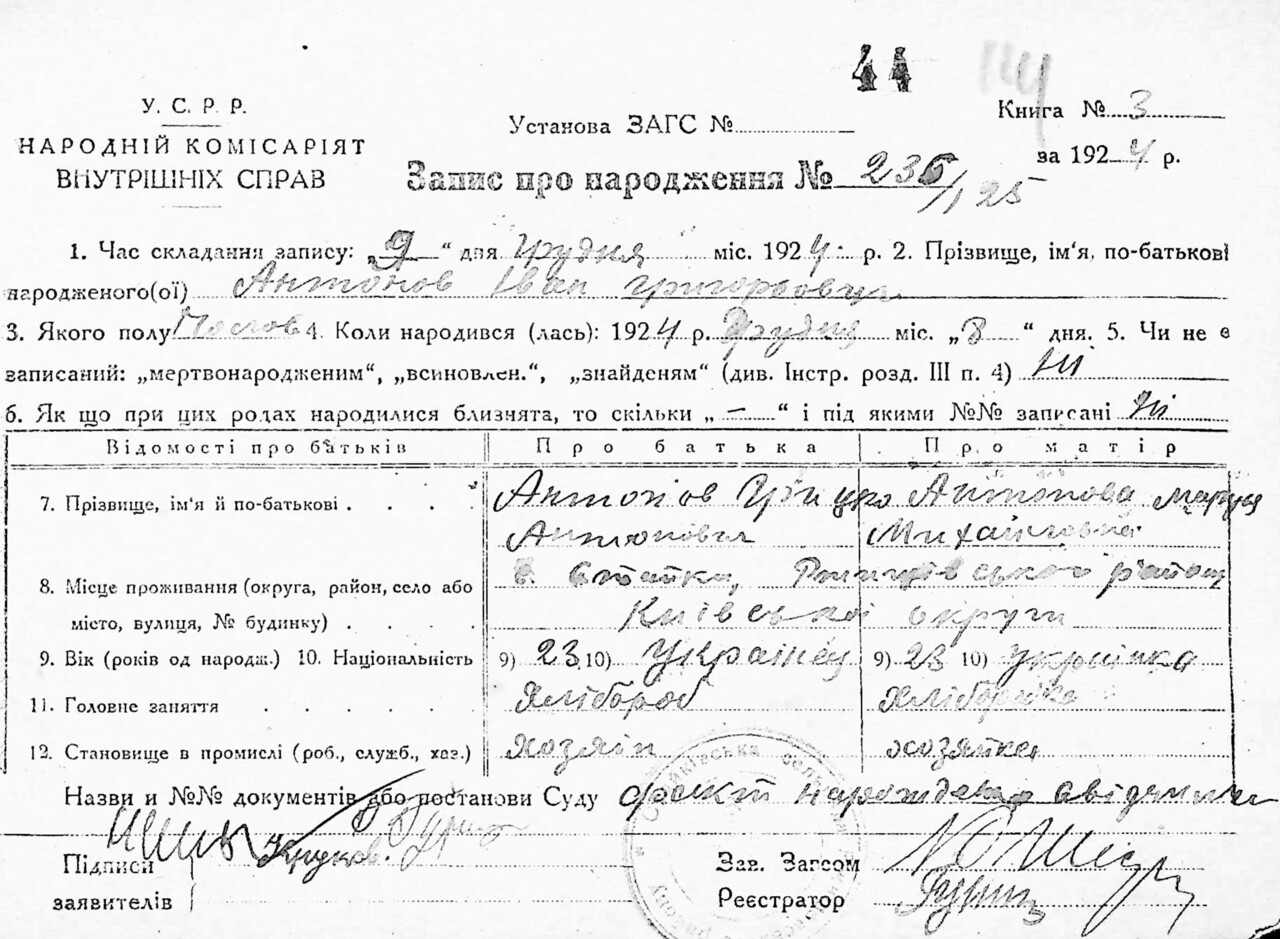 44
У. С. Р. Р.
НАРОДНІЙ КОМІСАРІЯТ
ВНУТРІШНІХ СПРАВ
Установа ЗАГС №
Книга № 3
за 1924 р.
Запис про народження № 236/125
1. Час складання запису: „9“ дня Грудня міс. 1924 р. 2. Прізвище, ім'я, по-батькові
народженого(ої) Антонов Іван Григорьович
3. Якого полу 4. Коли народився (лась): 1924 р. Грудня міс. „8“ дня. 5. Чи не є
записаний: „мертвонародженим“, „всиновлен.“, „знайденям“ (див. Інстр. розд. III п. 4) Ні
6. Як що при цих родах народилися близнята, то скільки „ — “ і під якими №№ записані Ні
Відомості про батьків Про батька Про матір
7. Прізвище, ім'я й по-батькові . . . . Антонів Грицко Антонова Маруя
Антонович Михайловна
8. Місце проживання (округа, район, село або Стайки, району
місто, вулиця, № будинку) . . . . Київської округи
9. Вік (років од народж.) 10. Національність 9) 23 10) Українец 9) 23 10) Українка
11. Головне заняття . . . . . Хлібороб Хліборобка
12. Становище в промислі (роб., служб., хаз.) хозяін хозяйка
Назви и №№ документів або постанови Суду факт
Круков.
Підписи
заявителів
Зав. Загсом
Реєстратор